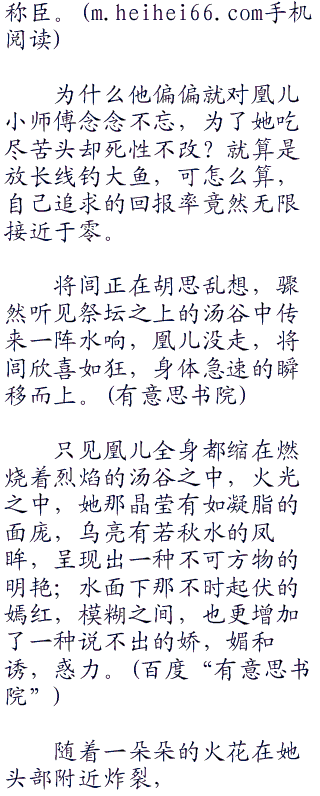 称臣。(m.heihei66.com手机
阅读)
为什么他偏偏就对凰儿
小师傅念念不忘，为了她吃
尽苦头却死性不改？就算是
放长线钓大鱼，可怎么算，
自己追求的回报率竟然无限
接近于零。
将闾正在胡思乱想，骤
然听见祭坛之上的汤谷中传
来一阵水响，凰儿没走，将
闾欣喜如狂，身体急速的瞬
移而上。(有意思书院)
只见凰儿全身都缩在燃
烧着烈焰的汤谷之中，火光
之中，她那晶莹有如凝脂的
面庞，乌亮有若秋水的凤
眸，呈现出一种不可方物的
明艳；水面下那不时起伏的
嫣红，模糊之间，也更增加
了一种说不出的娇，媚和
诱，惑力。(百度“有意思书
院”)
随着一朵朵的火花在她
头部附近炸裂，